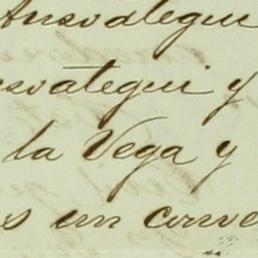 Ansvategui
esvategui y
la Vega y
s un conve